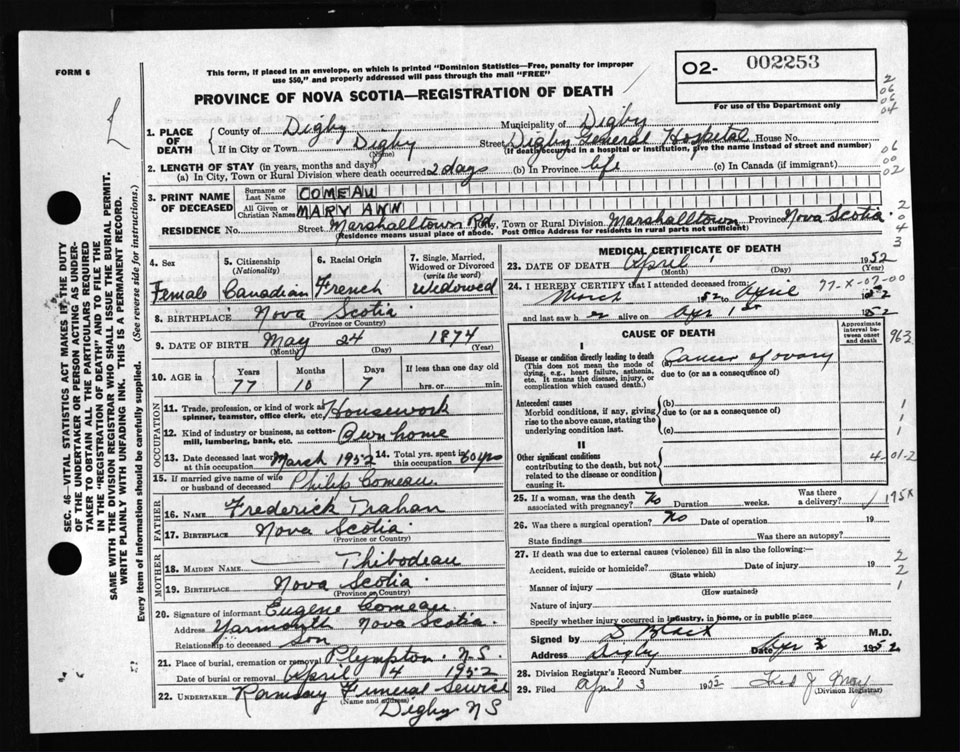 FORM 6
This form, if placed in an envelope, on which is printed "Dominion Statistics—Free, penalty for improper
use $50," and properly addressed will pass through the mail "FREE"
PROVINCE OF NOVA SCOTIA—REGISTRATION OF DEATH
02- 002253
For use of the Department only
2
06
06
04
1. PLACE OF DEATH
County of Digby Municipality of Digby
If in City or Town Digby Street Digby General Hospital House No.
(Name) (If death occurred in a hospital or institution, give the name instead of street and number)
06
00
02
2. LENGTH OF STAY (in years, months and days)
(a) In City, Town or Rural Division where death occurred 2 days (b) In Province life (c) In Canada (if immigrant)
3. PRINT NAME OF DECEASED
Surname or Last Name COMEAU
All Given or Christian Names MARY ANN
RESIDENCE No. Street Marshalltown Rd. City, Town or Rural Division Marshalltown Province Nova Scotia.
(Residence means usual place of abode. Post Office Address for residents in rural parts not sufficient)
2
0
4
3
4. Sex Female
5. Citizenship (Nationality) Canadian
6. Racial Origin French
7. Single, Married, Widowed or Divorced (write the word) Widowed
8. BIRTHPLACE Nova Scotia
(Province or Country)
9. DATE OF BIRTH May 24 1874
(Month) (Day) (Year)
10. AGE in Years 77 Months 10 Days 7 If less than one day old hrs. or min.
OCCUPATION
11. Trade, profession, or kind of work as spinner, teamster, office clerk, etc. Housework
12. Kind of industry or business, as cotton-mill, lumbering, bank, etc. Own home
13. Date deceased last worked at this occupation March 1952 14. Total yrs. spent in this occupation 60 yrs
15. If married give name of wife or husband of deceased Philip Comeau.
FATHER
16. NAME Frederick Trahan
17. BIRTHPLACE Nova Scotia.
(Province or Country)
MOTHER
18. MAIDEN NAME Thibodeau
19. BIRTHPLACE Nova Scotia.
(Province or Country)
20. Signature of informant Eugene Comeau.
Address Yarmouth Nova Scotia.
Relationship to deceased Son
21. Place of burial, cremation or removal Plympton. N.S.
Date of burial or removal April 4 1952
22. UNDERTAKER Ramsay Funeral Service
(Name and address)
Digby NS
MEDICAL CERTIFICATE OF DEATH
23. DATE OF DEATH April 1 1952
(Month) (Day) (Year)
24. I HEREBY CERTIFY that I attended deceased from:
77-X-07-00
March 1952 to April 1952
and last saw her alive on Apr 1st 1952
CAUSE OF DEATH
Approximate interval between onset and death
963
I
Disease or condition directly leading to death
(This does not mean the mode of dying, e.g., heart failure, asthenia, etc. It means the disease, injury, or complication which caused death.)
(a) Cancer of ovary
due to (or as a consequence of)
Antecedent causes
Morbid conditions, if any, giving rise to the above cause, stating the underlying condition last.
(b)
due to (or as a consequence of)
(c)
1
1
1
II
Other significant conditions
contributing to the death, but not related to the disease or condition causing it.
4-01-2
25. If a woman, was the death associated with pregnancy? No Duration weeks. Was there a delivery?
175X
26. Was there a surgical operation? No Date of operation 19
State findings Was there an autopsy?
27. If death was due to external causes (violence) fill in also the following:—
Accident, suicide or homicide? Date of injury 19
(State which)
Manner of injury
(How sustained)
Nature of injury
2
2
1
Specify whether injury occurred in industry, in home, or in public place
Signed by D Black M.D.
Address Digby Date Apr 2 1952
28. Division Registrar's Record Number
29. Filed April 3 1952 Fred J May
(Division Registrar)
SEC. 46—VITAL STATISTICS ACT MAKES IT THE DUTY
OF THE UNDERTAKER OR PERSON ACTING AS UNDER-
TAKER TO OBTAIN ALL THE PARTICULARS REQUIRED
IN THE "REGISTRATION OF DEATH" AND TO FILE THE
SAME WITH THE DIVISION REGISTRAR WHO SHALL ISSUE THE BURIAL PERMIT.
WRITE PLAINLY WITH UNFADING INK. THIS IS A PERMANENT RECORD.
Every item of information should be carefully supplied. (See reverse side for instructions.)